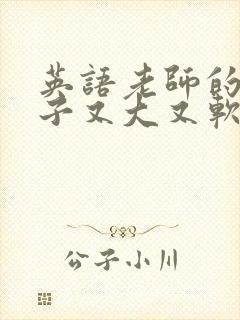 英語老師的
子又大又軟
公子小川